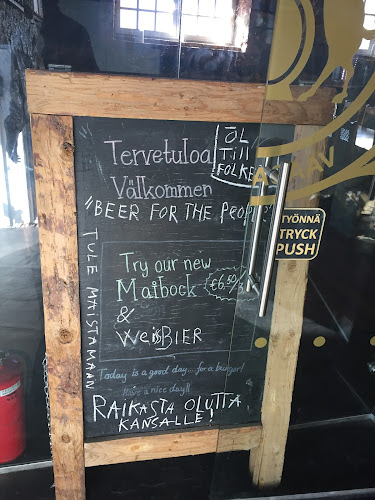 Tervetuloa
Välkommen
ÖL
Till
FOLKE
"BEER FOR THE PEOPL
TULE MAISTAMAAN
Try our new
Maibock
€6,50
&
WeißBIER
Today is a good day... for a burger!
Have a nice day!!
RAIKASTA OLUTTA
KANSALLE!
TYÖNNÄ
TRYCK
PUSH
VAASAN